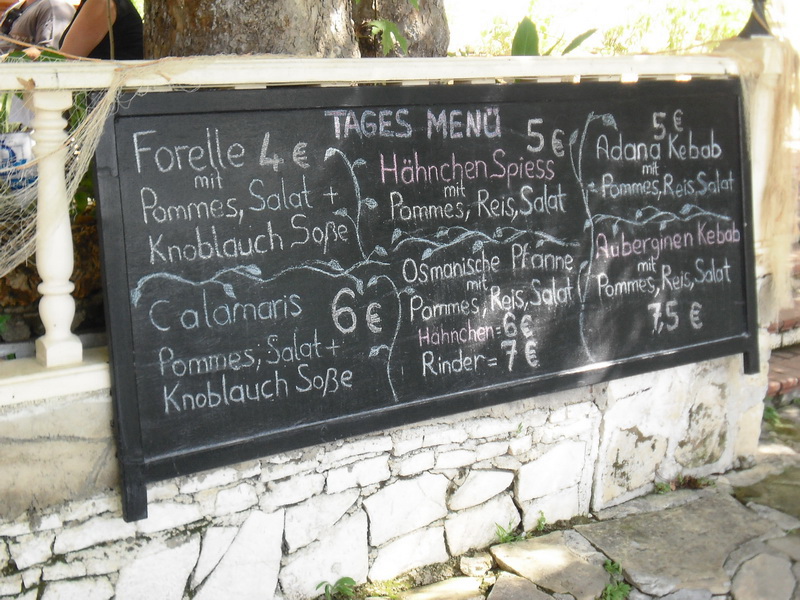 TAGES MENÜ
Forelle 4 €
mit
Pommes, Salat +
Knoblauch Soße
Calamaris 6 €
Pommes, Salat +
Knoblauch Soße
5 €
Hähnchen Spiess
mit
Pommes, Reis, Salat
Osmanische Pfanne
mit
Pommes, Reis, Salat
Hähnchen = 6 €
Rinder = 7 €
5 €
Adana Kebab
mit
Pommes, Reis, Salat
Auberginen Kebab
mit
Pommes, Reis, Salat
7,5 €